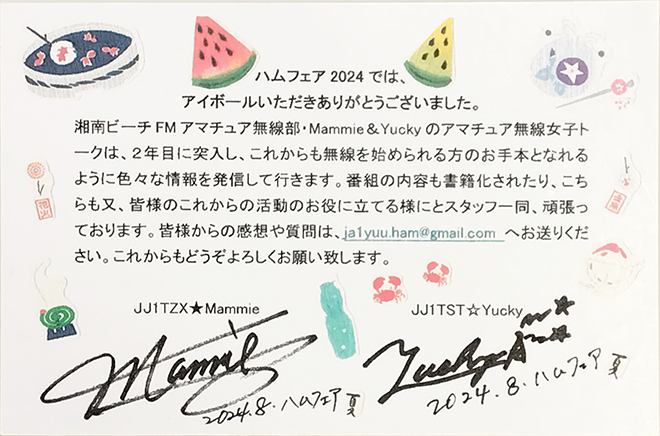 ハムフェア2024では、
アイボールいただきありがとうございました。
湘南ビーチFMアマチュア無線部・Mammie＆Yuckyのアマチュア無線女子ト
ークは、2年目に突入し、これからも無線を始められる方のお手本となれる
ように色々な情報を発信して行きます。番組の内容も書籍化されたり、こち
らも又、皆様のこれからの活動のお役に立てる様にとスタッフ一同、頑張っ
ております。皆様からの感想や質問は、ja1yuu.ham@gmail.com へお送りくだ
さい。これからもどうぞよろしくお願い致します。
JJ1TZX★Mammie
JJ1TST☆Yucky
Mammie
2024.8.ハムフェア夏
Yucky
2024.8.ハムフェア夏